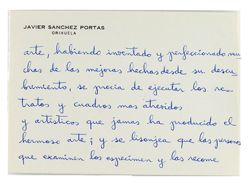 JAVIER SANCHEZ PORTAS
ORIHUELA
arte, habiendo inventado y perfeccionado mu
chas de las mejoras hechas desde su descu
brimiento, se precia de ejecutar los re
tratos y cuadros mas atrevidos
y artísticos que jamas ha producido el
hermoso arte; y se lisonjea que las personas
que examinen los especimen y las recome